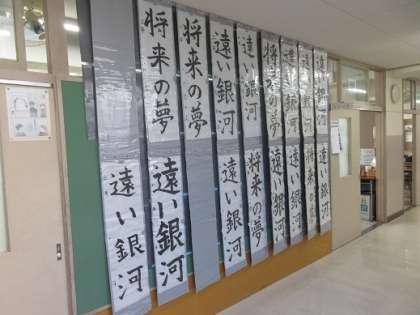 将来の夢
将来の夢
遠い銀河
遠い銀河
将来の夢
遠い銀河
遠い銀河
遠い銀河
遠い銀河
遠い銀河
遠い銀河
将来の夢
遠い銀河
遠い銀河
将来の夢
遠い銀河